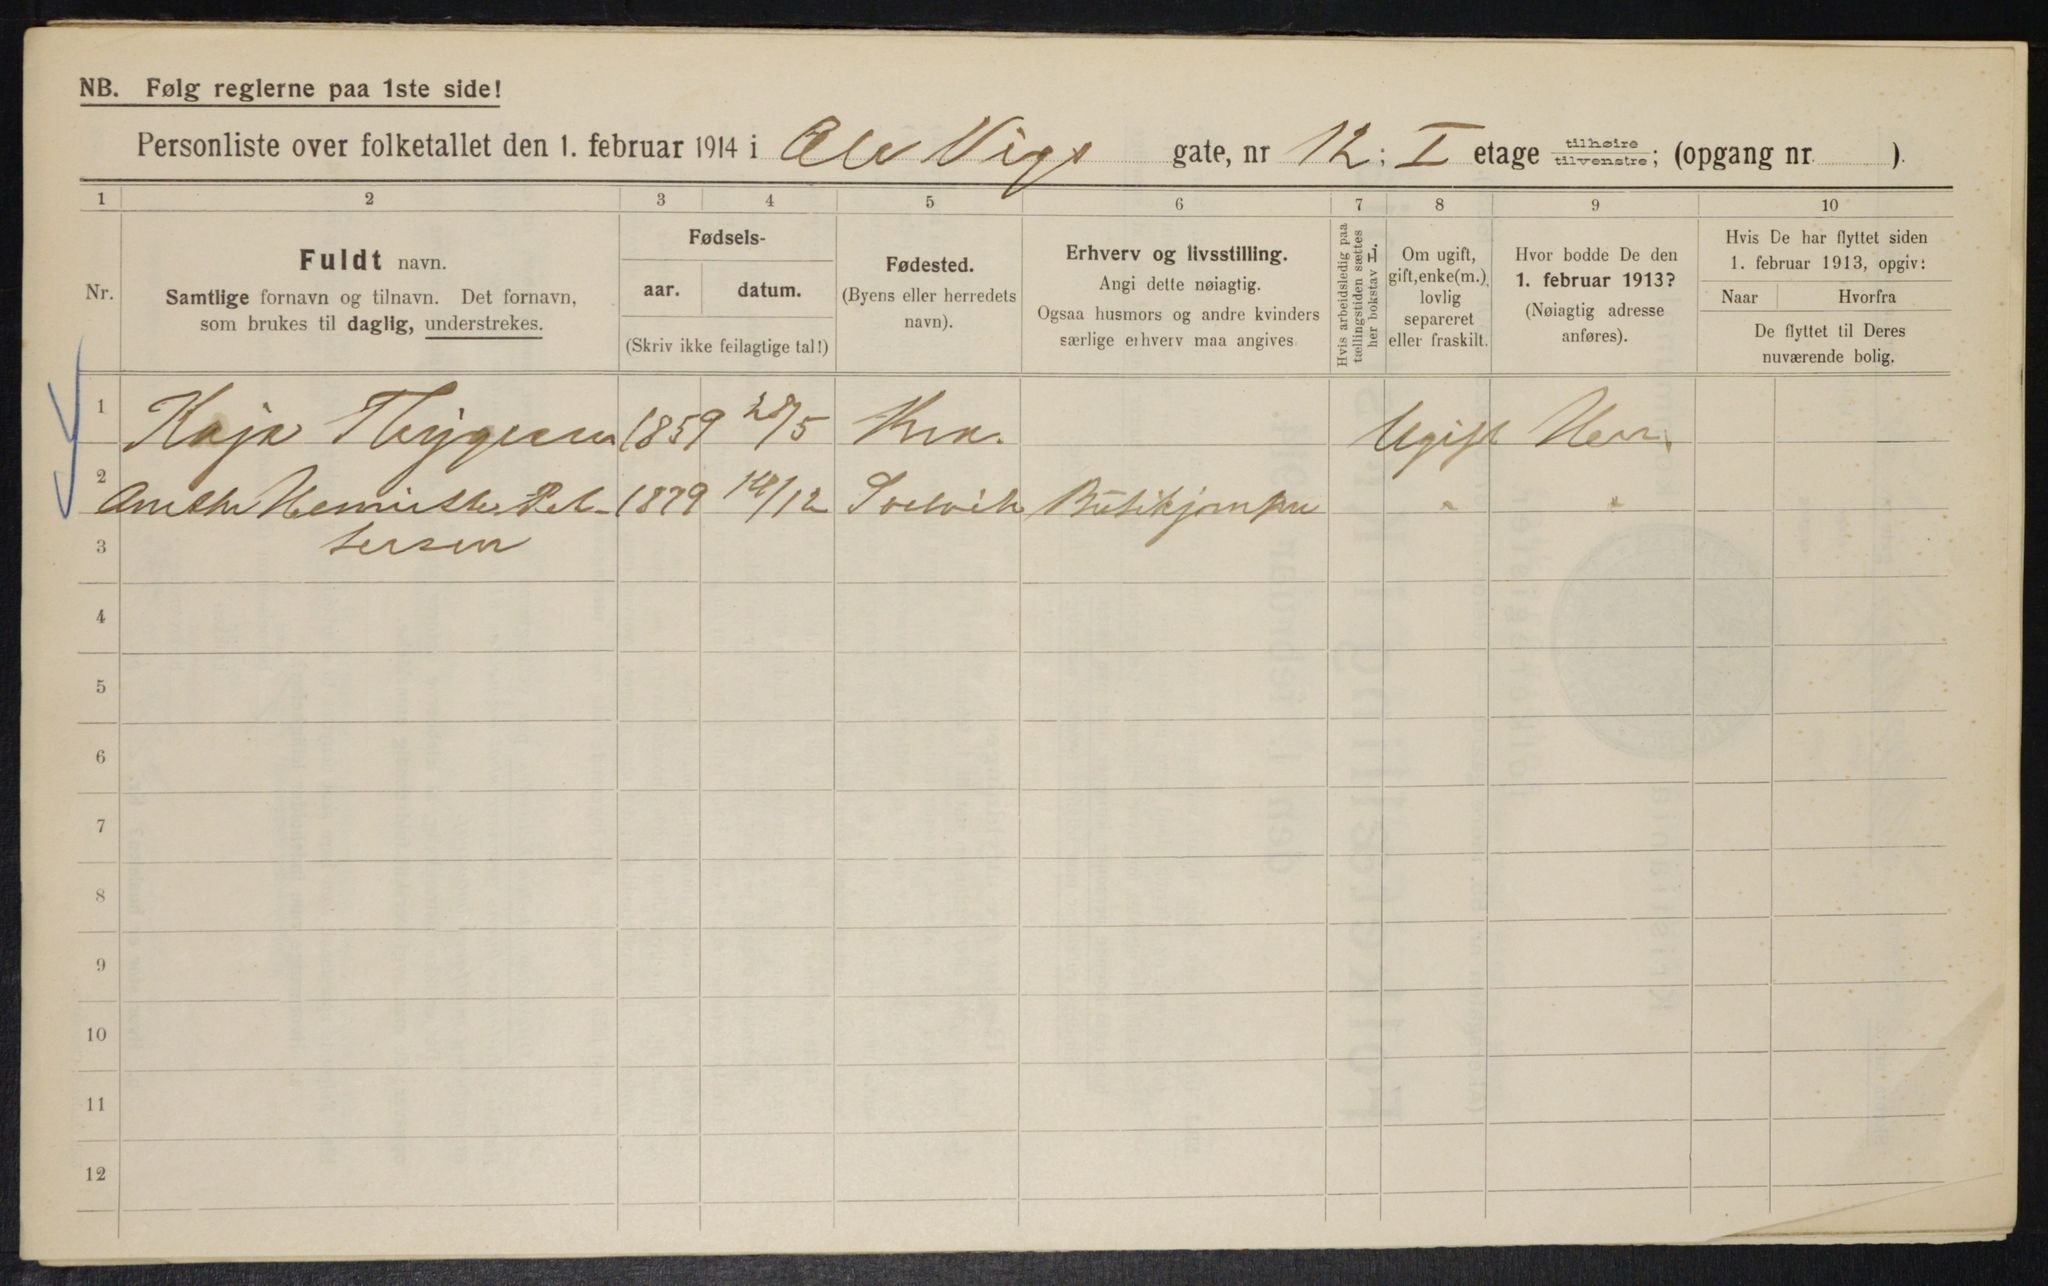 NB. Følg reglerne paa 1ste side!
Personliste over folketallet den 1. februar 1914 i Ole Vigs gate, nr 12; I etage tilhøire tilvenstre; (opgang nr ).
1 2 3 4 5 6 7 8 9 10
Nr.
Fuldt navn.
Samtlige fornavn og tilnavn. Det fornavn,
som brukes til daglig, understrekes.
Fødsels-
aar. datum.
(Skriv ikke feilagtige tal!)
Fødested.
(Byens eller herredets
navn).
Erhverv og livsstilling.
Angi dette nøiagtig.
Ogsaa husmors og andre kvinders
særlige erhverv maa angives.
Hvis arbeidsledig paa
tællingstiden sættes
her bokstav L.
Om ugift,
gift, enke(m.),
lovlig
separeret
eller fraskilt.
Hvor bodde De den
1. februar 1913?
(Nøiagtig adresse
anføres).
Hvis De har flyttet siden
1. februar 1913, opgiv:
Naar Hvorfra
De flyttet til Deres
nuværende bolig.
1 Kaja Thygesen 1859 28/5 Kra. Ugift Her.
2 Henriette Pet- 1879 14/12 Svelvik " "
3 tersen
4
5
6
7
8
9
10
11
12